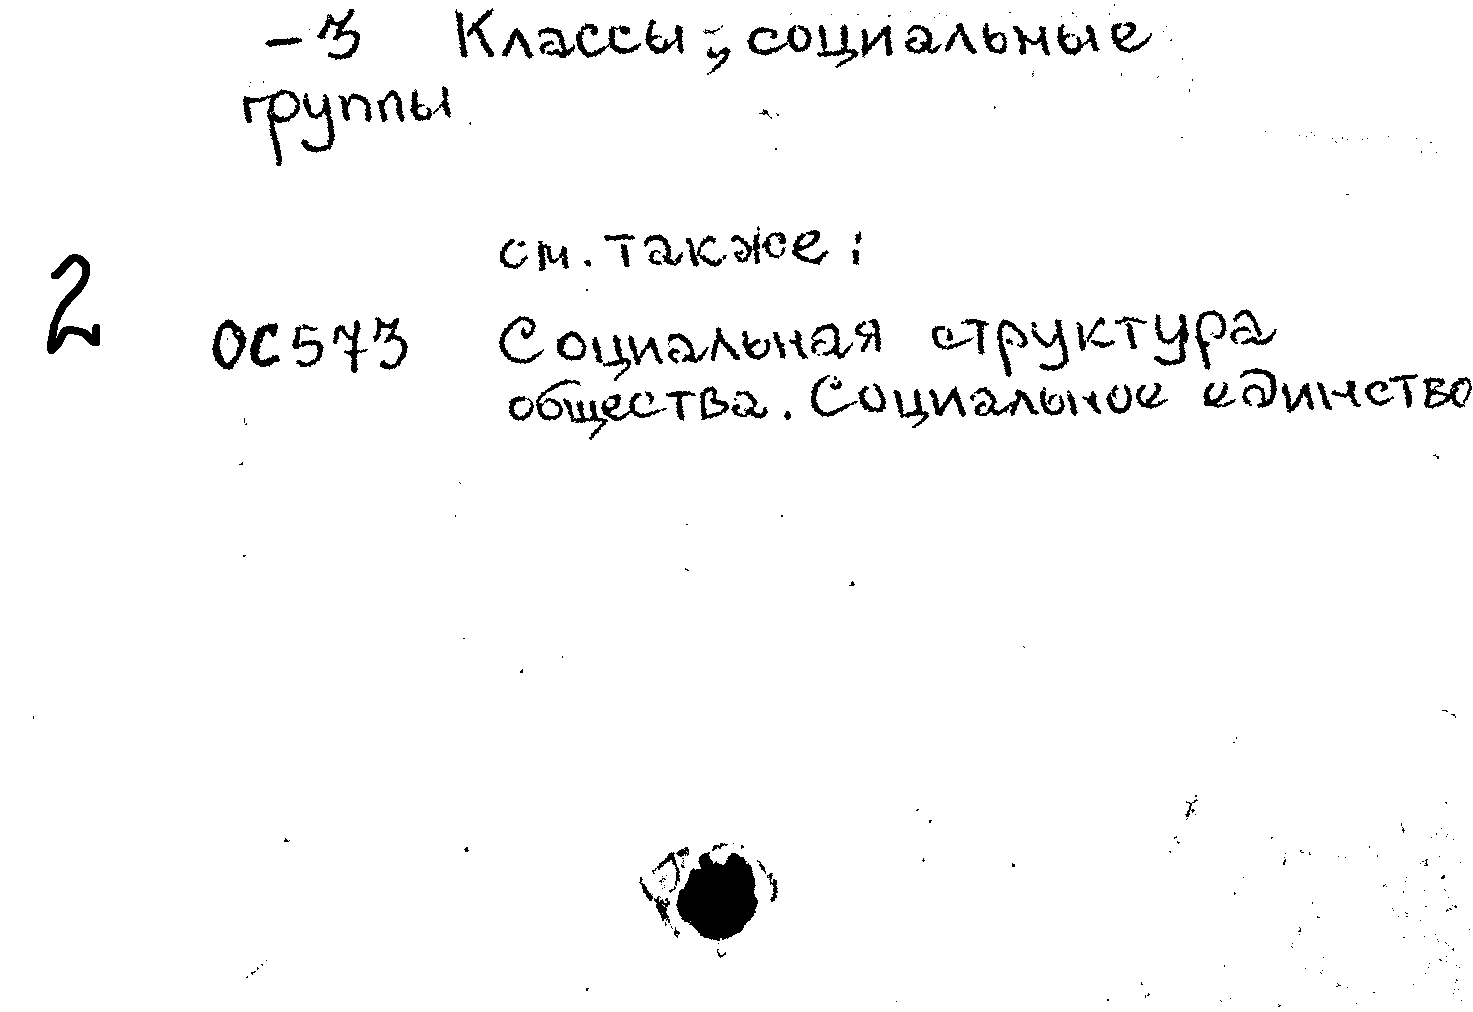 -3 Классы, социальные
группы
см. также:
2 ОС573 Социальная структура
общества. Социальное единство